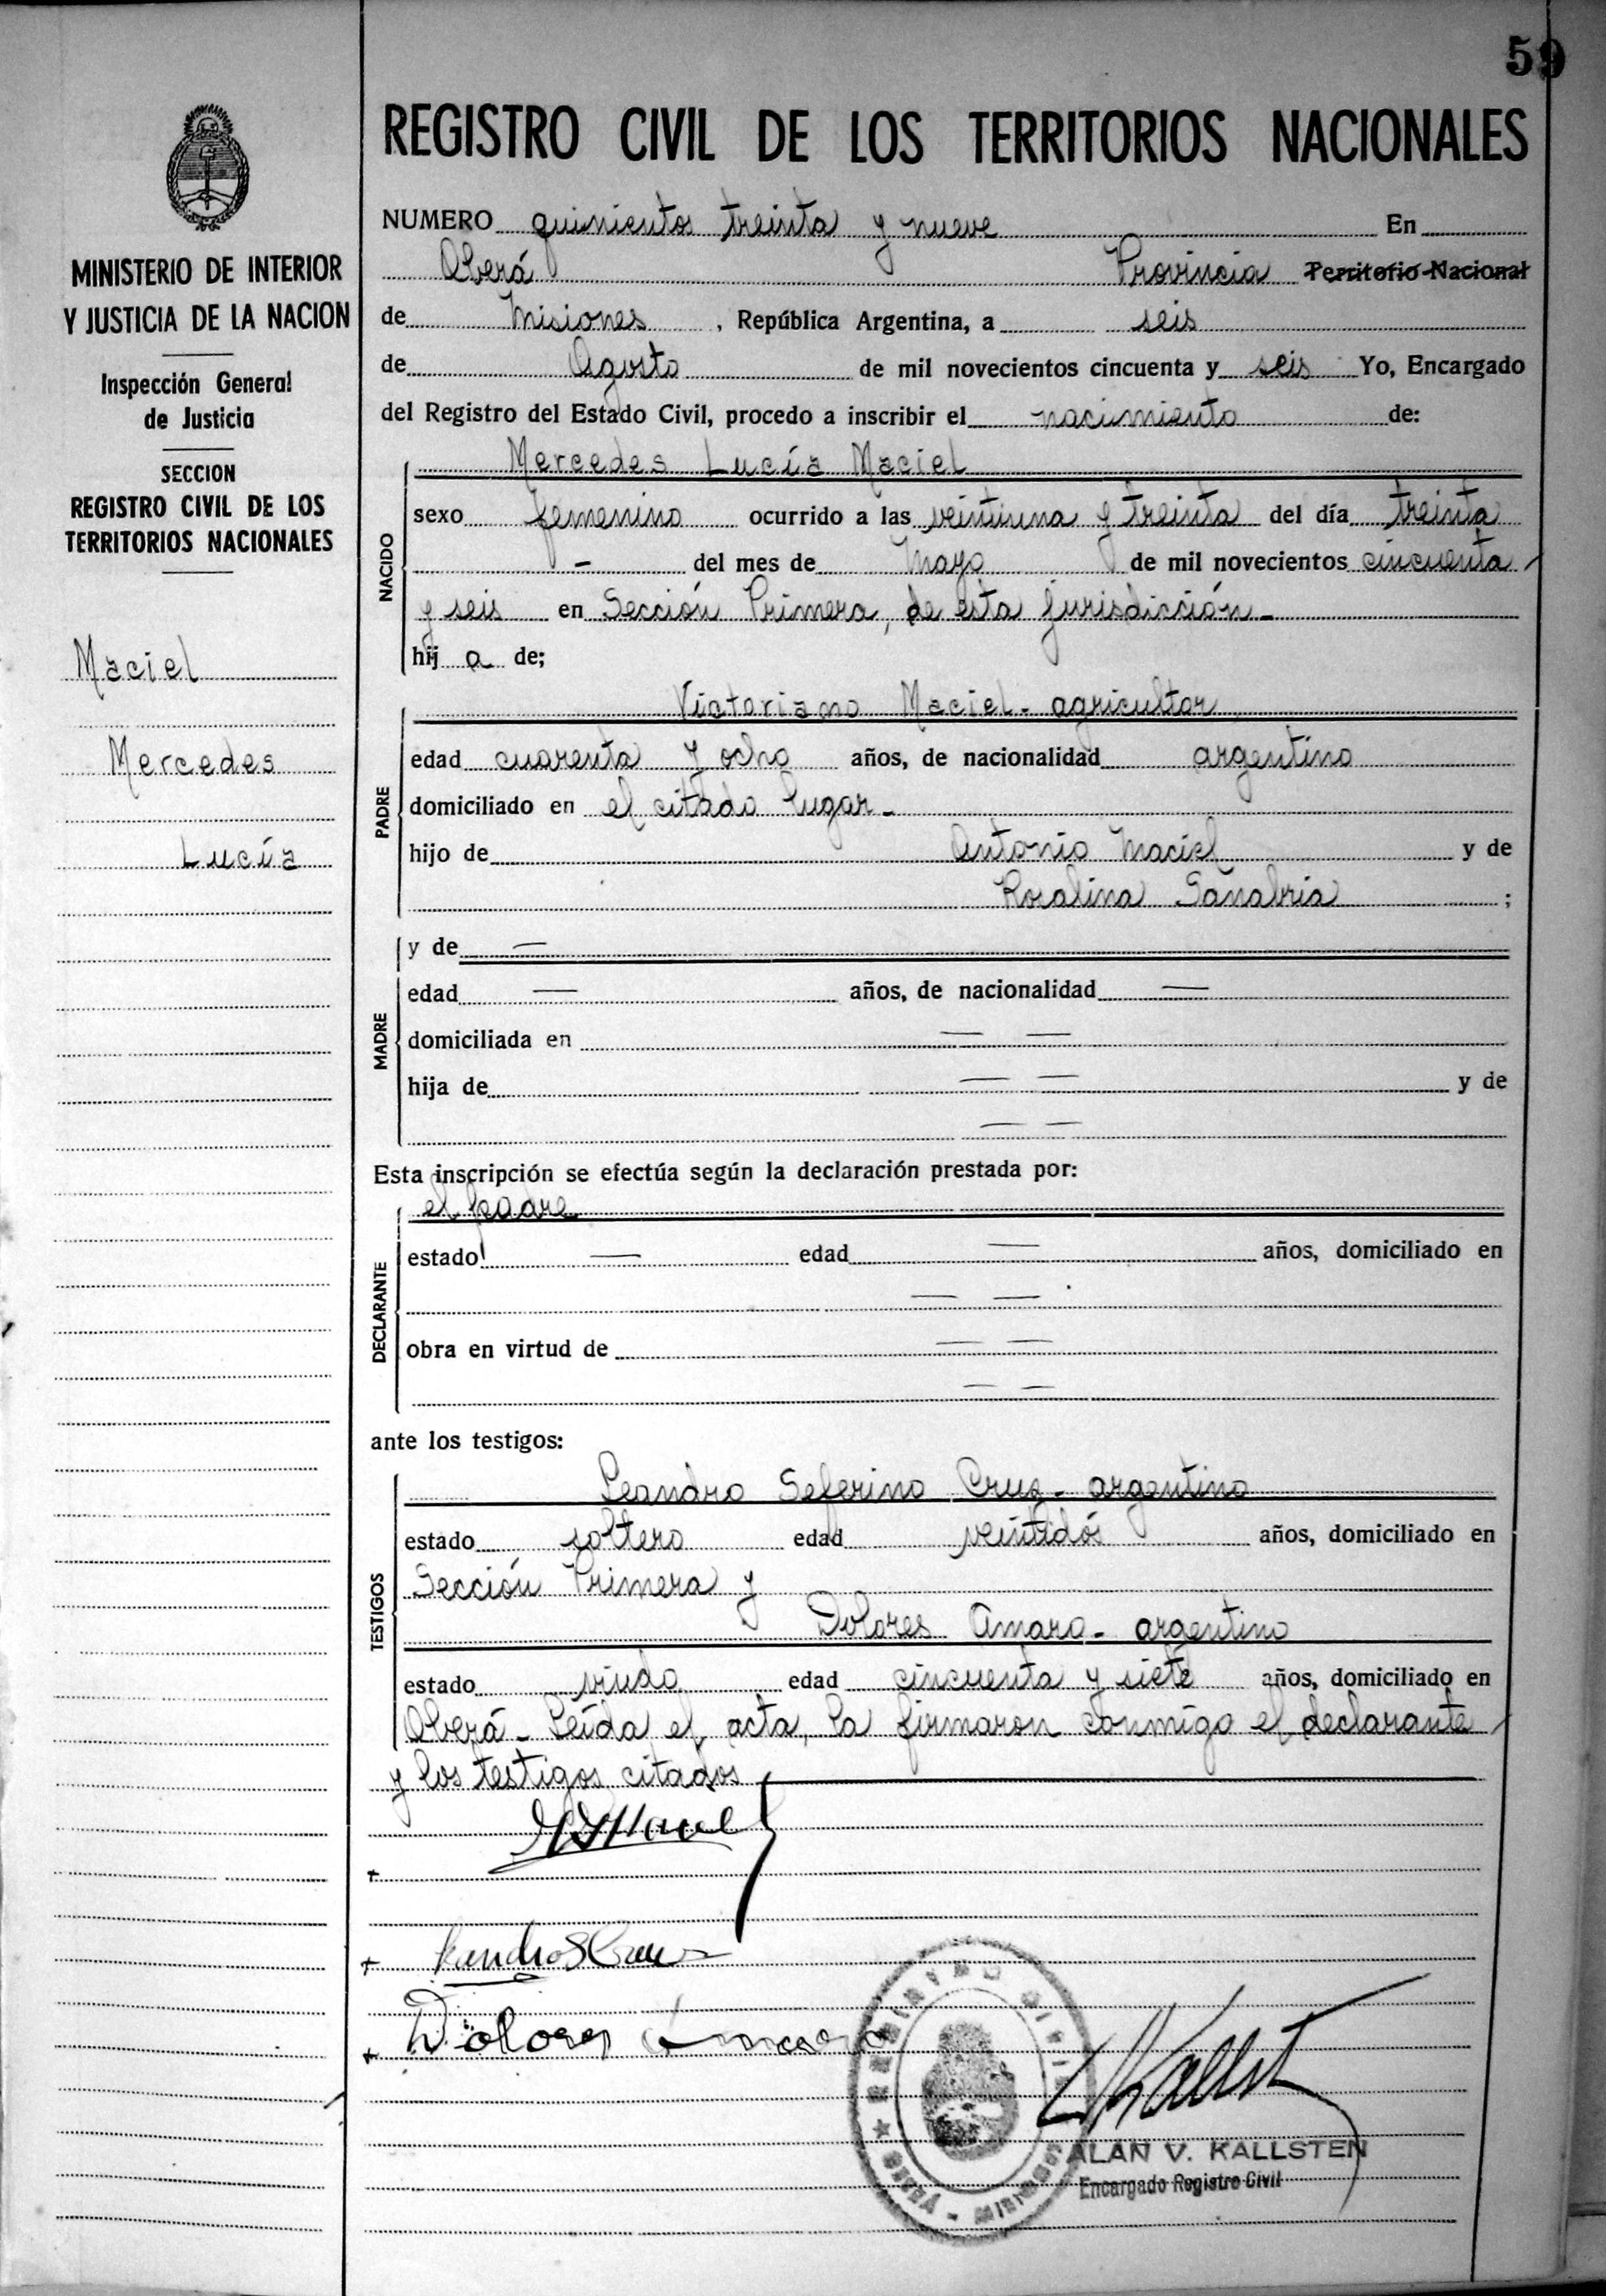 59
REGISTRO CIVIL DE LOS TERRITORIOS NACIONALES
MINISTERIO DE INTERIOR
Y JUSTICIA DE LA NACION
Inspección General
de Justicia
SECCION
REGISTRO CIVIL DE LOS
TERRITORIOS NACIONALES
Maciel
Mercedes
Lucía
NUMERO quinientos treinta y nueve En
Oberá Provincia Territorio Nacional
de Misiones, República Argentina, a seis
de Agosto de mil novecientos cincuenta y seis Yo, Encargado
del Registro del Estado Civil, procedo a inscribir el nacimiento de:
NACIDO
Mercedes Lucía Maciel
sexo femenino ocurrido a las veintiuna y treinta del día treinta
- del mes de Mayo de mil novecientos cincuenta
y seis en Sección Primera, de esta jurisdicción.-
hij a de;
PADRE
Victoriano Maciel - agricultor
edad cuarenta y ocho años, de nacionalidad argentino
domiciliado en el citado lugar.-
hijo de Antonio Maciel y de
Rosalina Sanabria ;
MADRE
y de —
edad — años, de nacionalidad —
domiciliada en — —
hija de — — y de
— —
Esta inscripción se efectúa según la declaración prestada por:
DECLARANTE
el padre
estado — edad — años, domiciliado en
— —
obra en virtud de — —
— —
ante los testigos:
TESTIGOS
Leandro Seferino Cruz - argentino
estado soltero edad veintidós años, domiciliado en
Sección Primera y
Dolores Amaro - argentino
estado viudo edad cincuenta y siete años, domiciliado en
Oberá - Leída el acta, la firmaron conmigo el declarante
y los testigos citados
Dolores Amaro
REGISTRO CIVIL
OBERA - MISIONES
ALAN V. KALLSTEN
Encargado Registro Civil